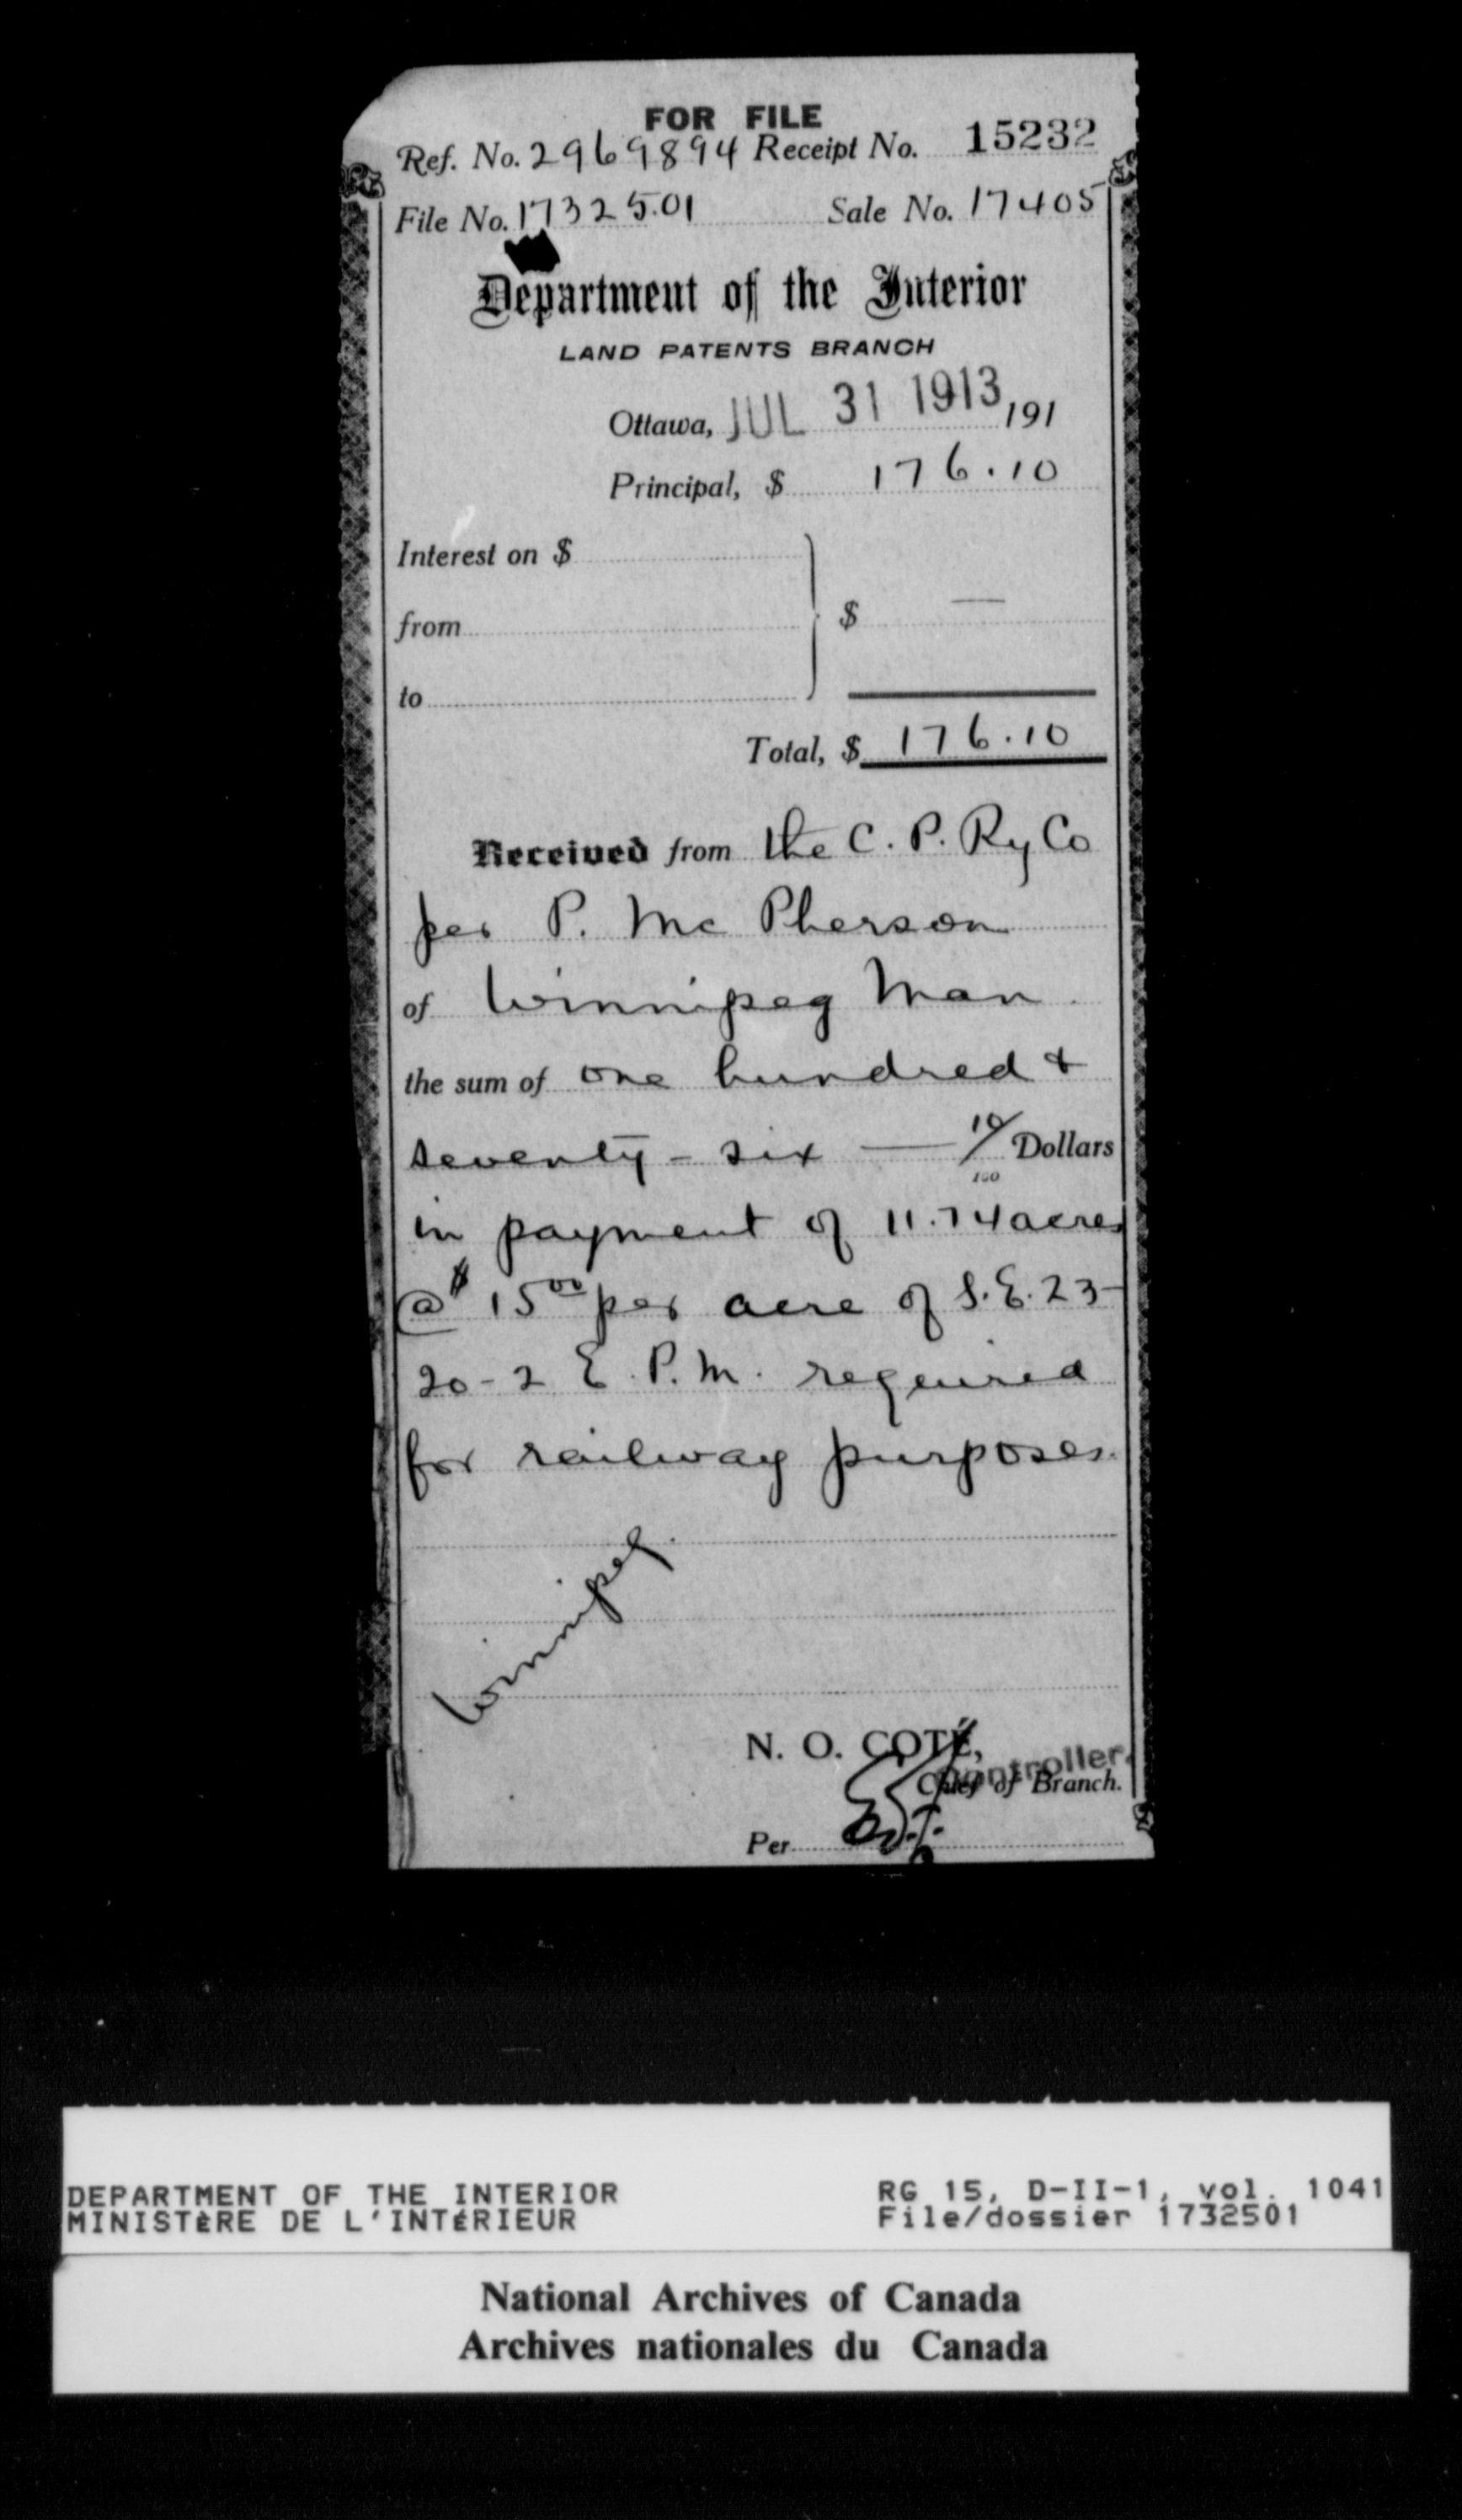 FOR FILE
Ref. No. 2969894 Receipt No. 15232
File No. 1732501 Sale No. 17405
Department of the Interior
LAND PATENTS BRANCH
Ottawa, JUL 31 1913, 191
Principal, $ 176.10
Interest on $
from $ —
to
Total, $ 176.10
Received from the C. P. Ry Co
per P. Mc Pherson
of Winnipeg Man.
the sum of one hundred &
seventy-six — 10/100 Dollars
in payment of 11.74 acres
@ $15 00 per acre of S.E. 23-
20-2 E. P. M. required
for railway purposes.
Winnipeg.
N. O. COTÉ,
Controller.
Chief of Branch.
Per
DEPARTMENT OF THE INTERIOR RG 15, D-II-1, vol. 1041
MINISTÈRE DE L'INTÉRIEUR File/dossier 1732501
National Archives of Canada
Archives nationales du Canada